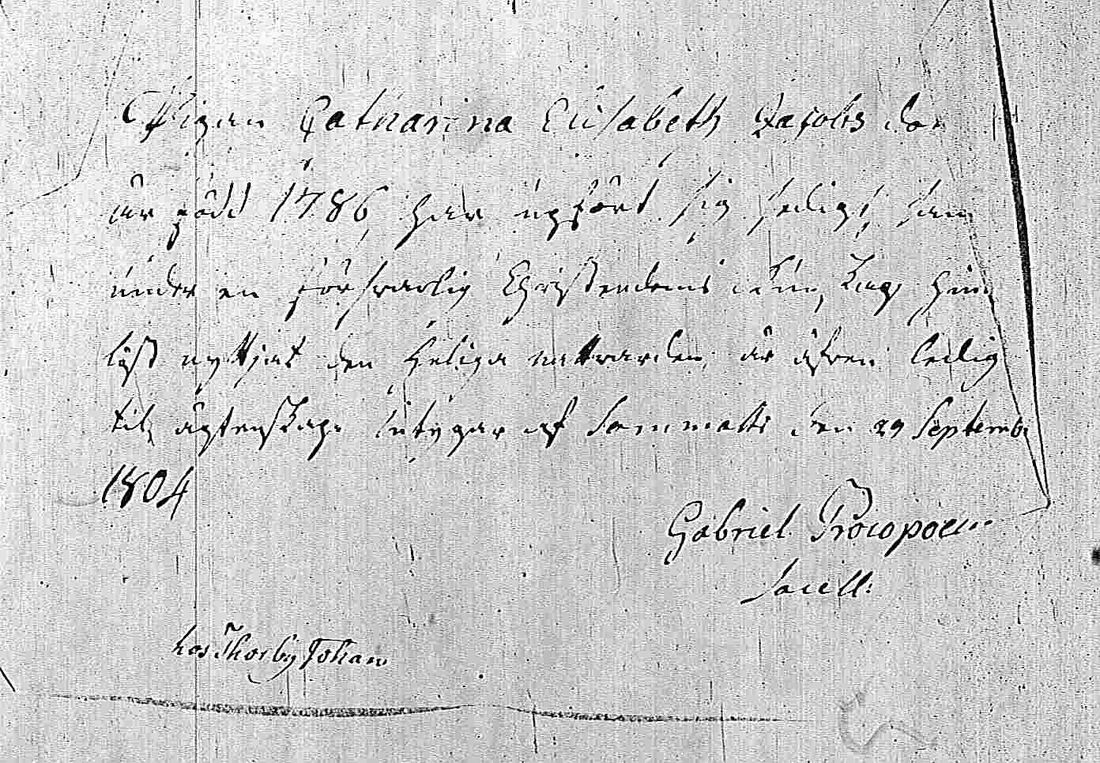 Pigan Catharina Elisabeth Jacobs dor
är född 1786, har upfört sig sedigt, sam
under en försvarlig Christendoms
löst nyttjat den Heliga nattvarden, är äfven ledig
til ägtenskap intygar af Sammatti den 29 Septembr
1804
Gabriel Procopoeus
Sacell:
hos Thorby Johan